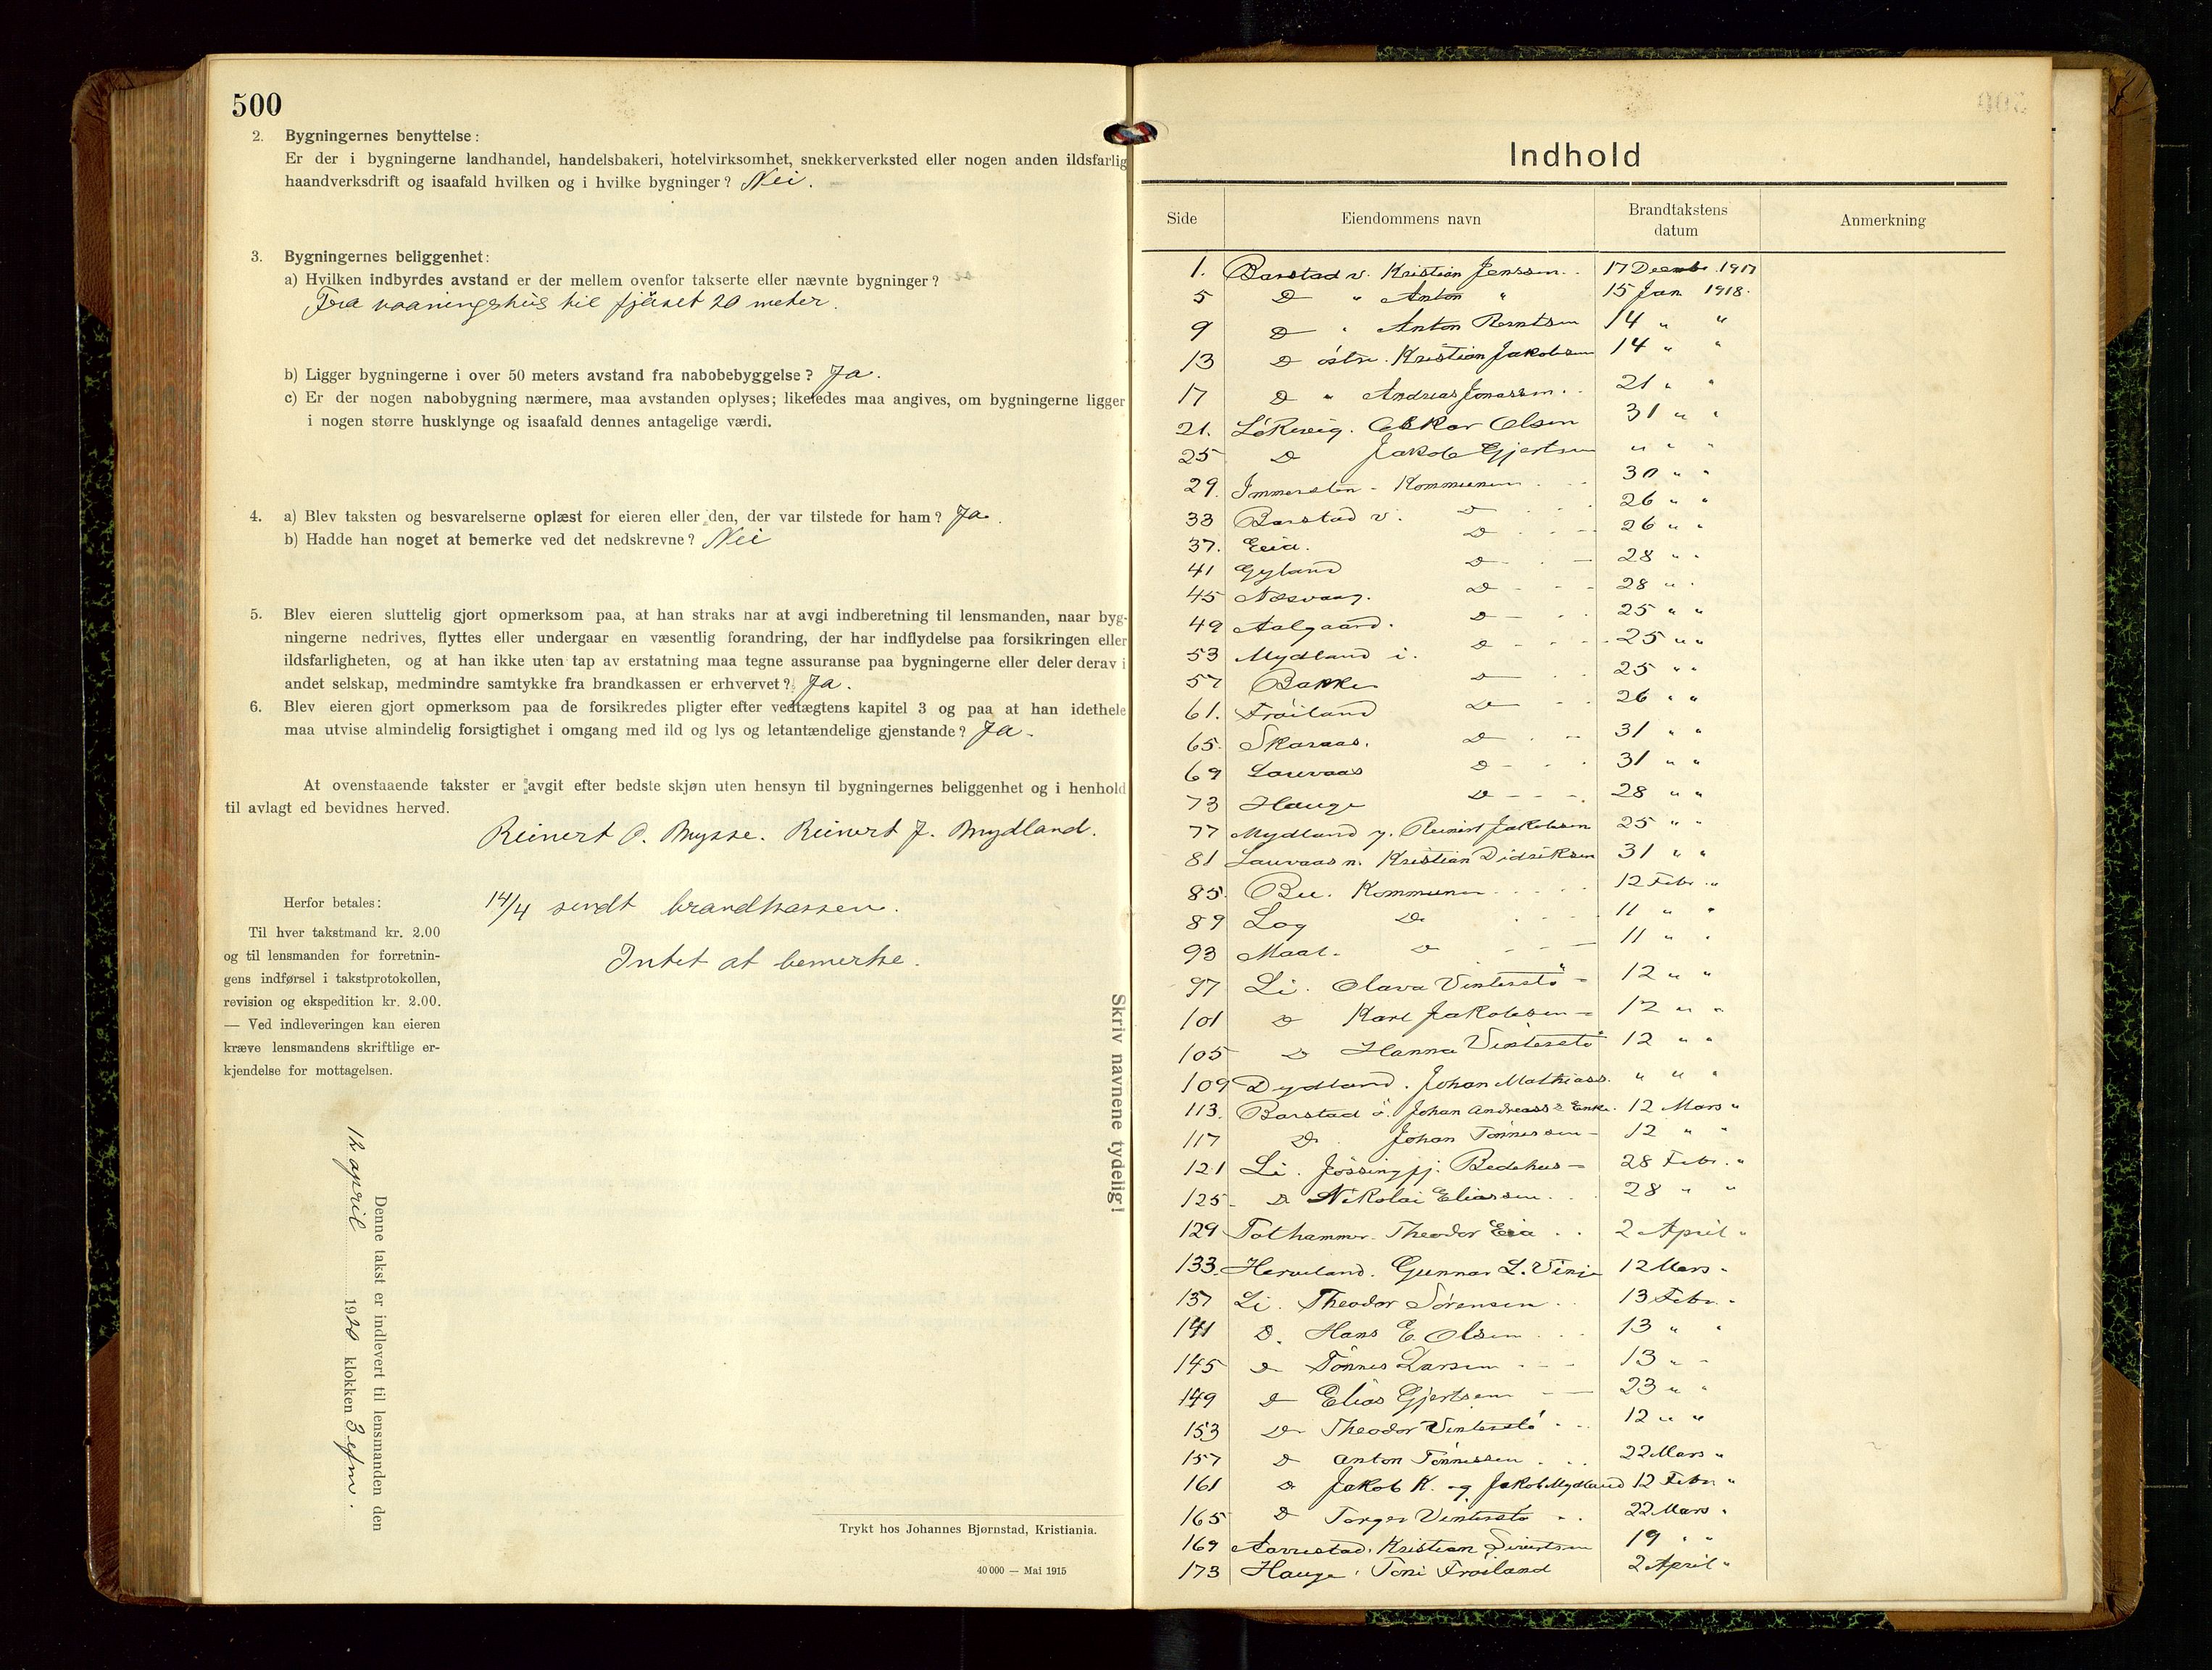 500
2. Bygningernes benyttelse:
Er der i bygningerne landhandel, handelsbakeri, hotelvirksomhet, snekkerverksted eller nogen anden ildsfarlig
haandverksdrift og isaafald hvilken og i hvilke bygninger? Nei.
3. Bygningernes beliggenhet:
a) Hvilken indbyrdes avstand er der mellem ovenfor takserte eller nævnte bygninger?
Fra vaaningshus til fjøset 20 meter.
b) Ligger bygningerne i over 50 meters avstand fra nabobebyggelse? Ja.
c) Er der nogen nabobygning nærmere, maa avstanden oplyses; likeledes maa angives, om bygningerne ligger
i nogen større husklynge og isaafald dennes antagelige værdi.
4. a) Blev taksten og besvarelserne oplæst for eieren eller den, der var tilstede for ham? Ja.
b) Hadde han noget at bemerke ved det nedskrevne? Nei
5. Blev eieren sluttelig gjort opmerksom paa, at han straks har at avgi indberetning til lensmanden, naar byg-
ningerne nedrives, flyttes eller undergaar en væsentlig forandring, der har indflydelse paa forsikringen eller
ildsfarligheten, og at han ikke uten tap av erstatning maa tegne assuranse paa bygningerne eller deler derav i
andet selskap, medmindre samtykke fra brandkassen er erhvervet? Ja.
6. Blev eieren gjort opmerksom paa de forsikredes pligter efter vedtægtens kapitel 3 og paa at han idethele
maa utvise almindelig forsigtighet i omgang med ild og lys og letantændelige gjenstande? Ja.
At ovenstaaende takster er avgit efter bedste skjøn uten hensyn til bygningernes beliggenhet og i henhold
til avlagt ed bevidnes herved.
Reinert O. Mysse. Reinert J. Mydland.
Herfor betales:
Til hver takstmand kr. 2.00
og til lensmanden for forretnin-
gens indførsel i takstprotokollen,
revision og ekspedition kr. 2.00.
— Ved indleveringen kan eieren
kræve lensmandens skriftlige er-
kjendelse for mottagelsen.
14/4 sendt brandkassen.
Intet at bemerke.
Denne takst er indlevert til lensmanden den
12 april 1920 klokken 3 efm.
Skriv navnene tydelig!
Trykt hos Johannes Bjørnstad, Kristiania.
40 000 — Mai 1915
Indhold
Side Eiendommens navn Brandtakstens datum Anmerkning
1. Barstad v. Kristian Jenssen 17 Decmbr. 1917
5 D " Anton " 15 Jan 1918.
9 D " Anton Berntsen 14 " "
13 D östre. Kristian Jakobsen 14 " "
17 D " Andreas Jonassen 21 " "
21. Lökevig. Oskar Olsen 31 " "
25 D Jakob Gjertsen " " "
29. Immersten - Kommunen 30 " "
33 Barstad v. D 26 " "
37. Eeia. D 26 " "
41 Gyland D 28 " "
45 Nesvaag. D 28 " "
49 Aalgaard. D 25 " "
53 Mydland i. D 25 " "
57 Bakke D 25 " "
61. Fröiland D 26 " "
65. Skaraas. D 31 " "
69 Lauvaas D 31 " "
73 Hauge D 28 " "
77 Mydland y. Reinert Jakobsen 25 " "
81 Lauvaas n. Kristian Didriksen 31 " "
85. Bu. Kommunen 12 Febr. "
89 Log D 11 " "
93 Maal. D 11 " "
97 Li. Olava Vinterstö 12 " "
101 D Karl Jakobsen 12 " "
105 D Hanna Vinterstö 12 " "
109 Dydland. Johan Mathiass. " " "
113. Barstad ö. Johan Andreass. Enke. 12 Mars "
117 D. Johan Tönnessen 12 " "
121 Li. Jössingfj. Bedehus 28 Febr. "
125 D Nikolai Eliassen 28 " "
129 Tothammer. Theodor Eia 2 April "
133. Herveland. Gunnar L. Vinje 12 Mars "
137 Li. Theodor Sörensen 13 Febr. "
141 D. Hans E. Olsen 13 " "
145 D Tönnes Larsen 13 " "
149 D Elias Gjertsen 23 " "
153 D Theodor Vinterstö 12 " "
157 D Anton Tönnessen 22 Mars "
161 D Jakob K. og Jakob Mydland 12 Febr "
165 D Torger Vinterstö 22 Mars "
169 Aarrestad. Kristian Sivertsen 19 " "
173 Hauge. Toni Fröiland 2 April "